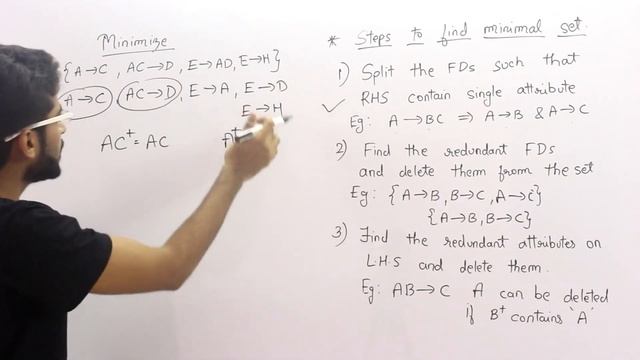 Minimize
{A→C, AC→D, E→AD, E→H}
A→C, AC→D, E→A, E→D
E→H
AC⁺ = AC
A⁺
* Steps to find minimal set.
1) Split the FDs such that
RHS contain single attribute
Eg: A→BC ⇒ A→B & A→C
2) Find the redundant FDs
and delete them from the set
Eg: {A→B, B→C, A→C}
{A→B, B→C}
3) Find the redundant attributes on
L.H.S and delete them.
Eg: AB→C A can be deleted
if B⁺ contains 'A'